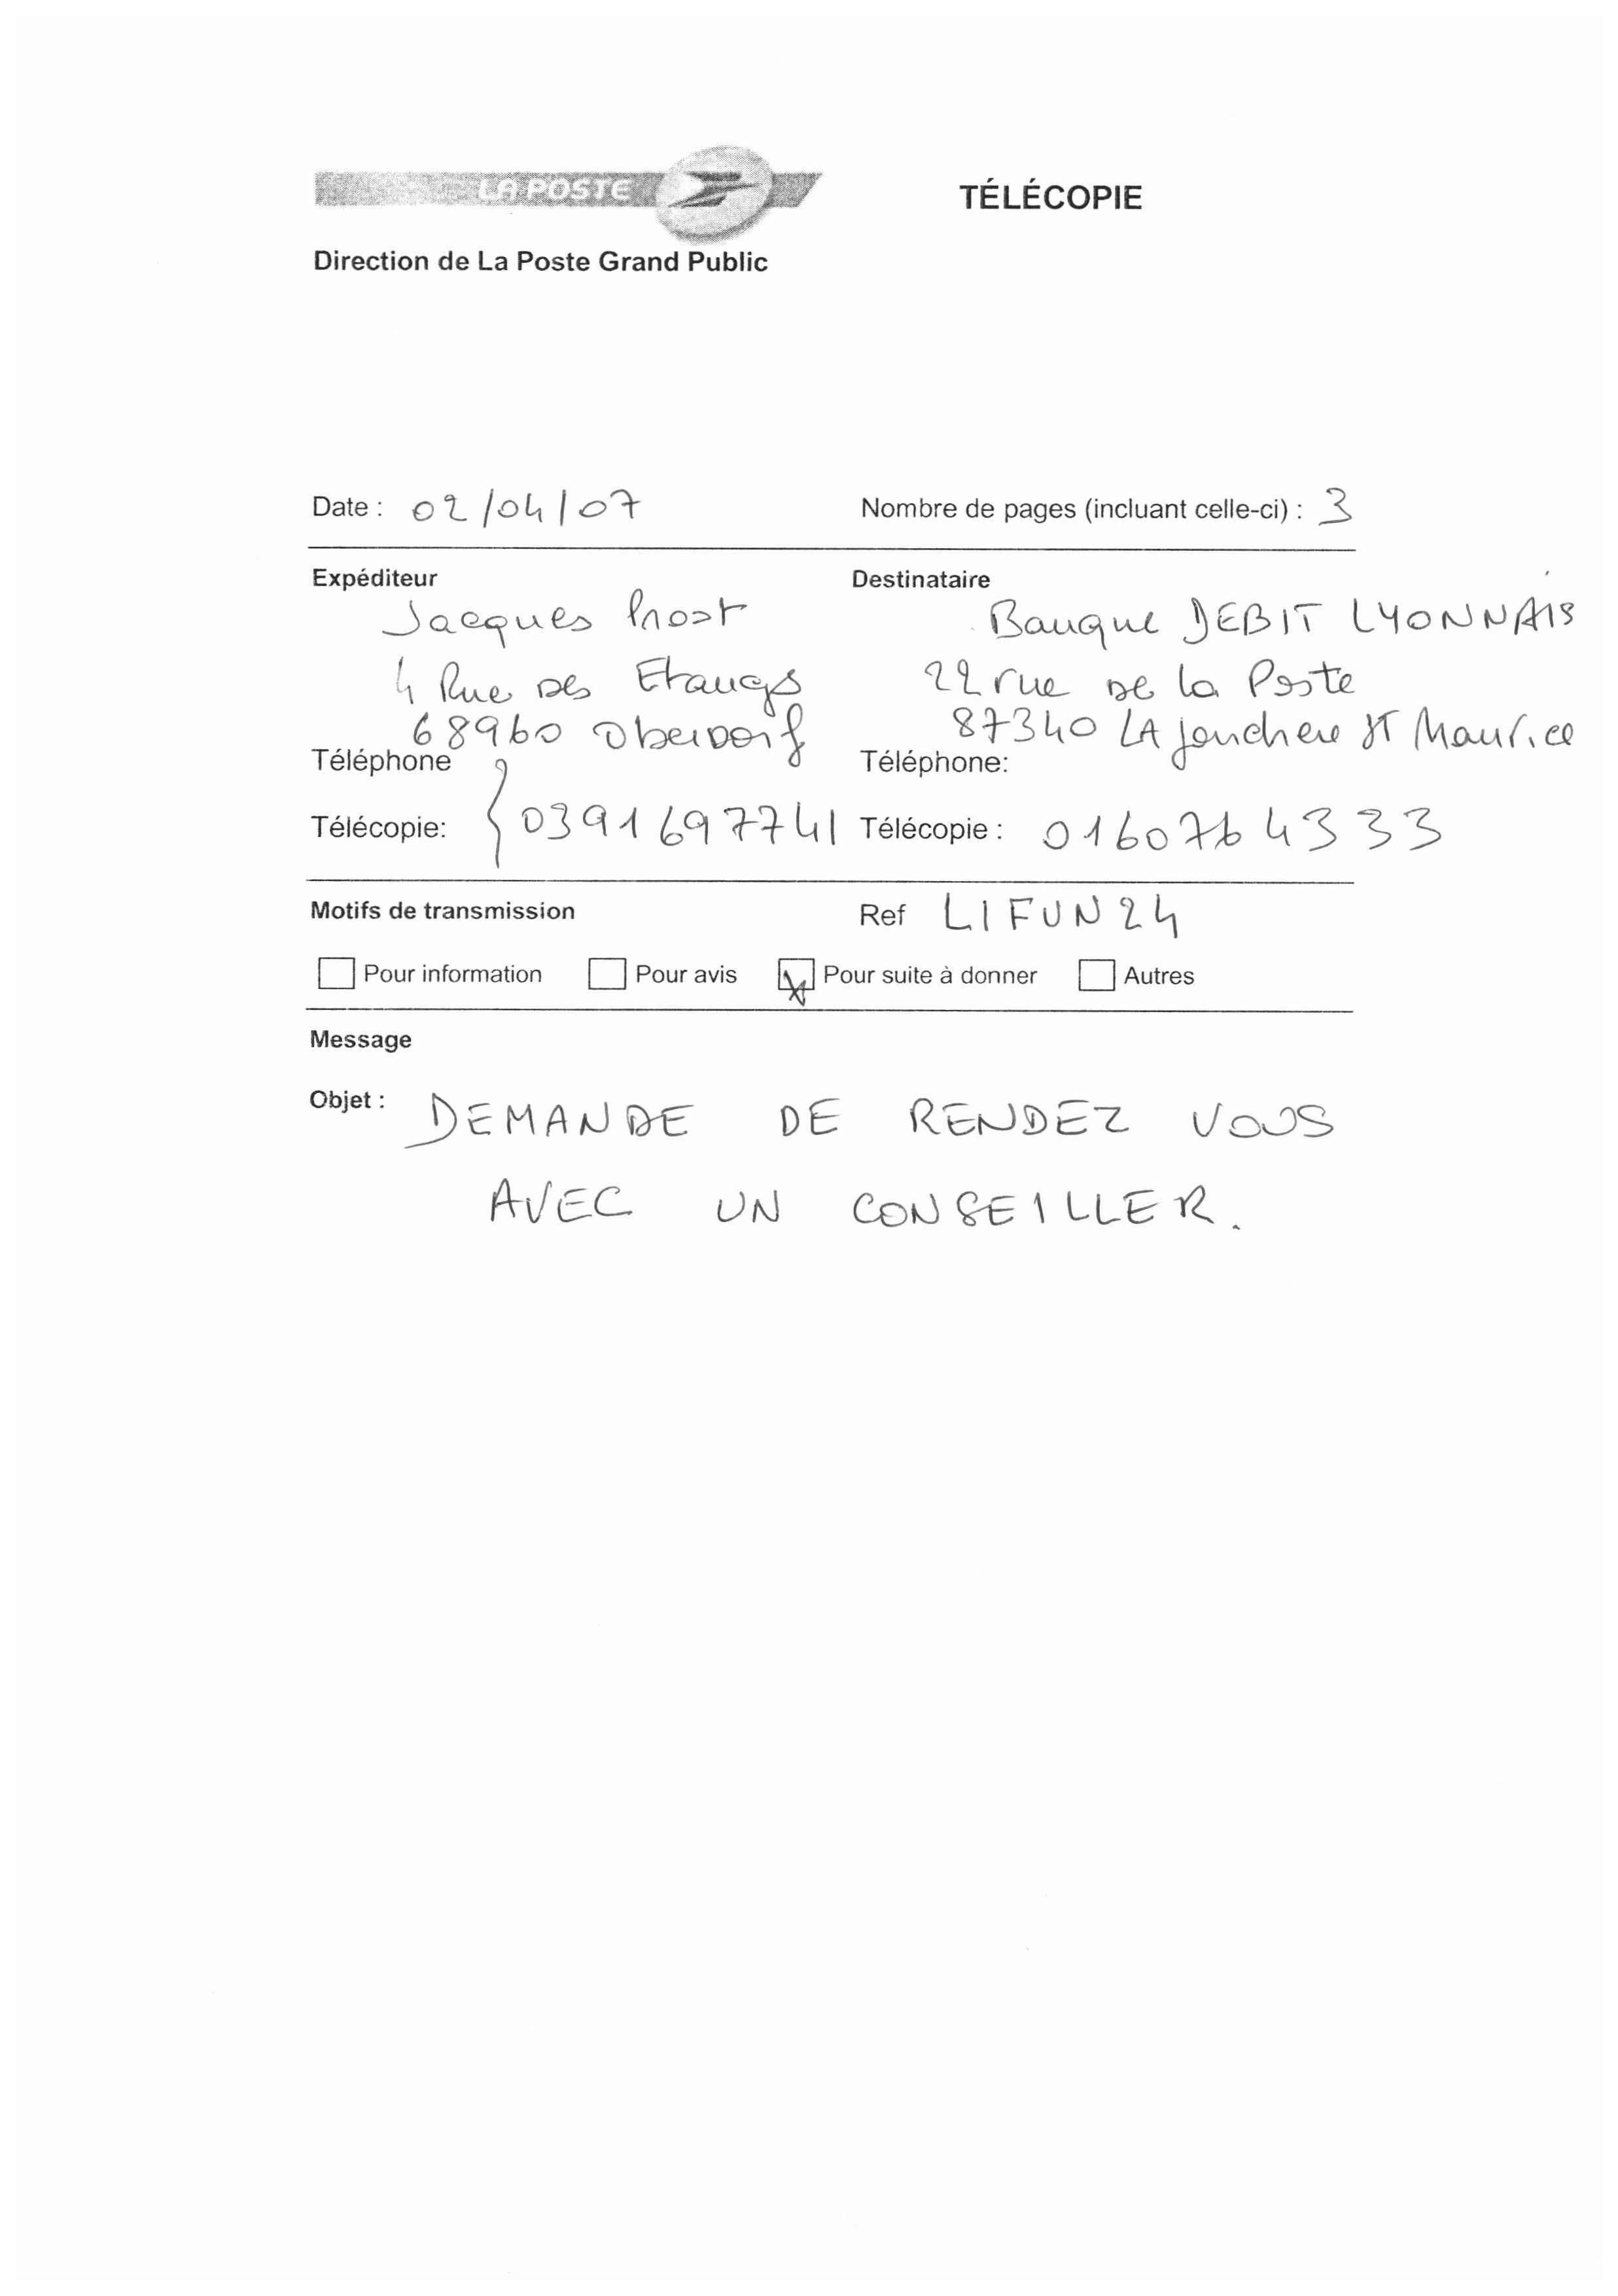 LA POSTE
TÉLÉCOPIE
Direction de La Poste Grand Public
Date : 02/04/07
Nombre de pages (incluant celle-ci) : 3
Expéditeur
Jacques Prost
4 Rue Des Etangs
68960 Oberdorf
Téléphone
Télécopie: 0391697741
Destinataire
Banque DEBIT LYONNAIS
22 rue De la Poste
87340 LA jonchere ST Maurice
Téléphone:
Télécopie : 0160764333
Motifs de transmission
Ref LIFUN24
Pour information Pour avis Pour suite à donner Autres
Message
Objet : DEMANDE DE RENDEZ VOUS
AVEC UN CONSEILLER.